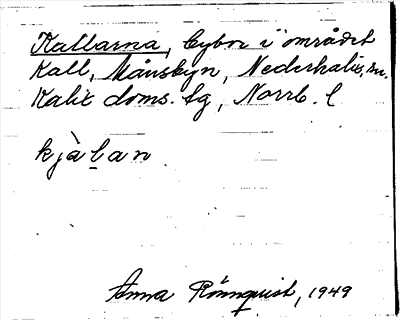 Kallarna, bybor i området
Kall, Månsbyn, Nederkalix sn.
Kalix doms. sg, Norrb. l
kjàḷan
Anna Rönnquist, 1949